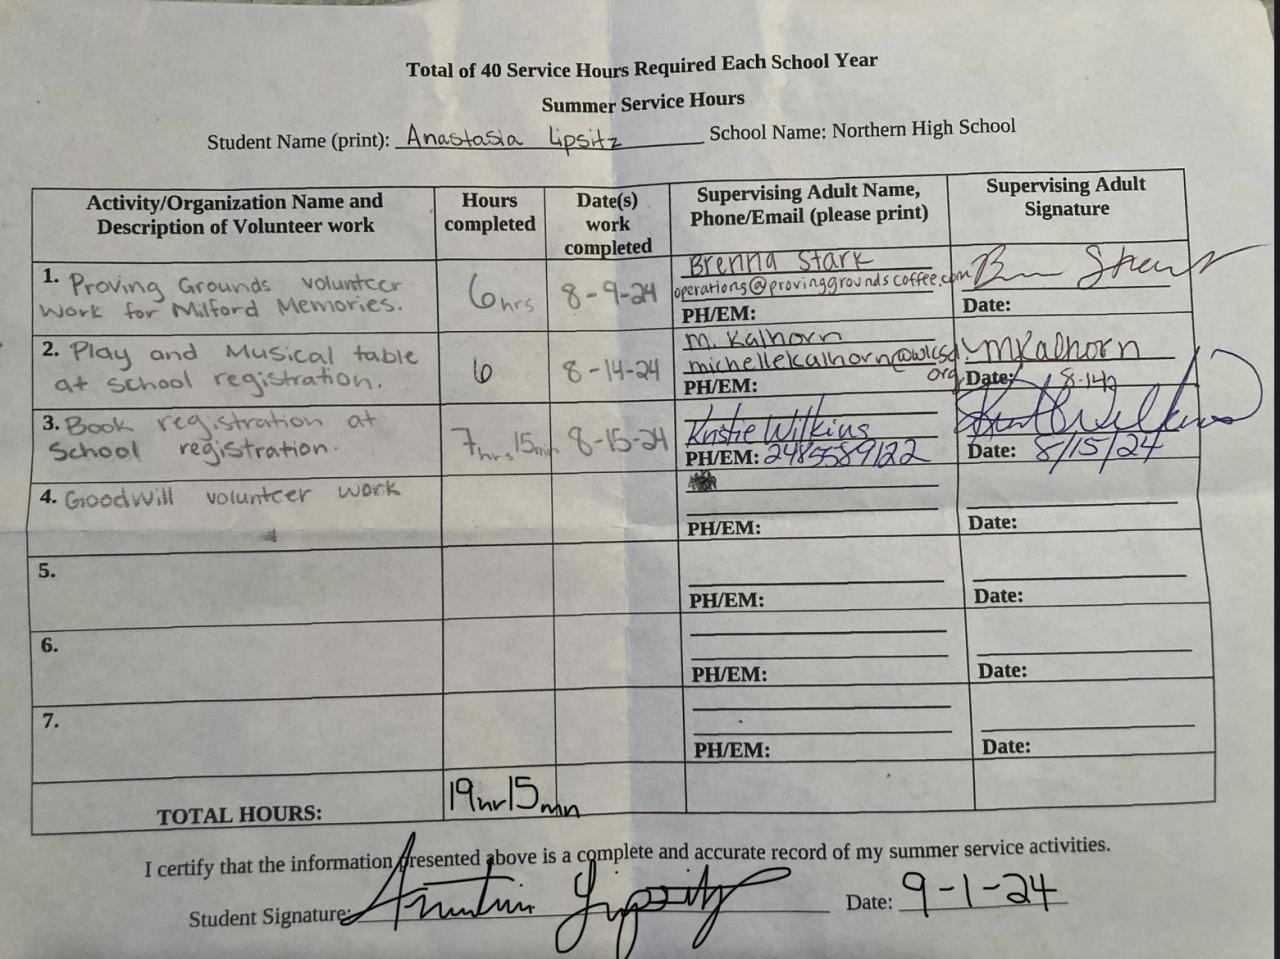 Total of 40 Service Hours Required Each School Year
Summer Service Hours
Student Name (print): Anastasia Lipsitz School Name: Northern High School
Activity/Organization Name and
Description of Volunteer work
Hours
completed
Date(s)
work
completed
Supervising Adult Name,
Phone/Email (please print)
Supervising Adult
Signature
1. Proving Grounds volunteer
work for Milford Memories.
6hrs
8-9-24
Brenna Stark
operations@provinggroundscoffee.com
PH/EM:
Date:
2. Play and Musical table
at school registration.
6
8-14-24
M. Kalhorn
michellekalhorn@wlcsd.
org
PH/EM:
MKalhorn
Date: 8-14
3. Book registration at
School registration.
7hrs 15min
8-15-24
Kristie Wilkins
PH/EM: 2485589122
Date: 8/15/24
4. Goodwill volunteer work
PH/EM:
Date:
5.
PH/EM:
Date:
6.
PH/EM:
Date:
7.
PH/EM:
Date:
TOTAL HOURS:
19hr15min
I certify that the information presented above is a complete and accurate record of my summer service activities.
Student Signature:
Date: 9-1-24